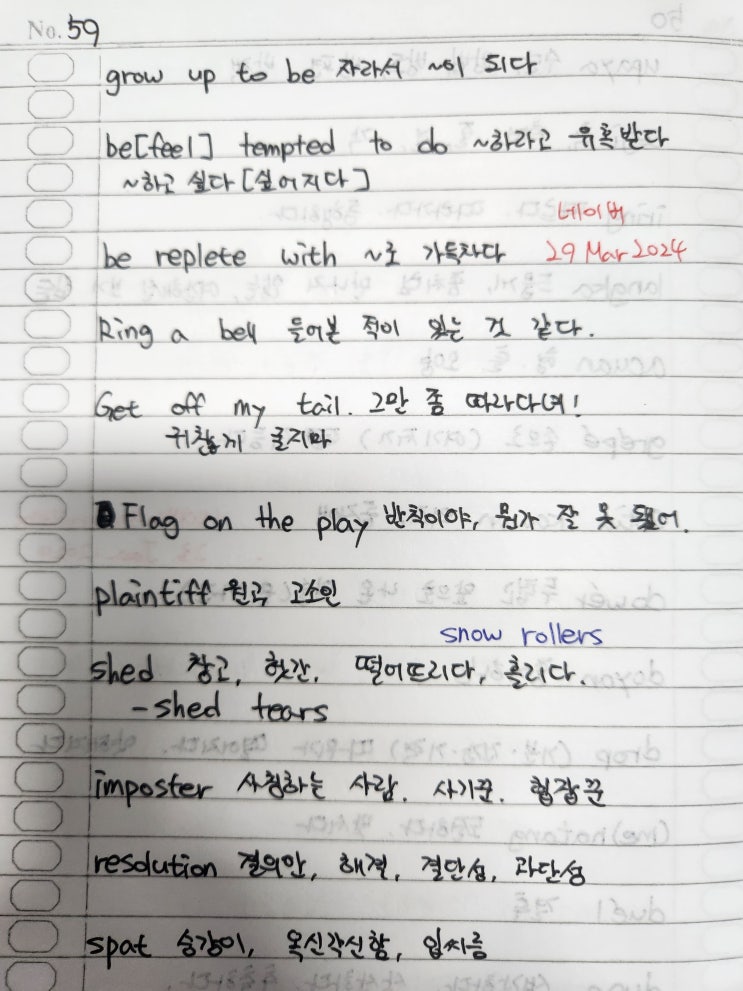 No. 59
grow up to be 자라서 ~이 되다
be[feel] tempted to do ~하라고 유혹받다
~하고 싶다[싶어지다]
네이버
be replete with ~로 가득차다 29 Mar 2024
Ring a bell 들어본 적이 있는 것 같다.
Get off my tail. 그만 좀 따라다녀!
귀찮게 굴지마
Flag on the play 반칙이야, 뭔가 잘 못 됐어.
plaintiff 원고 고소인
snow rollers
shed 창고, 헛간, 떨어뜨리다, 흘리다.
-shed tears
imposter 사칭하는 사람. 사기꾼. 협잡꾼
resolution 결의안, 해결, 결단성, 과단성
spat 승강이, 옥신각신함, 입씨름